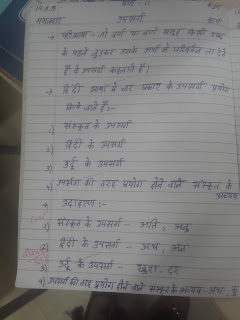 उपसर्ग
→ परिभाषा - जो वर्ण या वर्ण समूह किसी शब्द
के पहले जुड़कर उसके अर्थ में परिवर्तन ला देते
हैं, वे उपसर्ग कहलाते हैं।
→ हिन्दी भाषा में चार प्रकार के उपसर्ग प्रयोग
किये जाते हैं:-
1) संस्कृत के उपसर्ग
2) हिंदी के उपसर्ग
3) उर्दू के उपसर्ग
4) उपसर्ग की तरह प्रयोग होने वाले संस्कृत के
अव्यय
→ उदाहरण:-
1) संस्कृत के उपसर्ग - अति, अनु
2) हिंदी के उपसर्ग - अध, अन
3) उर्दू के उपसर्ग - खुश, दर
4) उपसर्ग की तरह प्रयोग होने वाले संस्कृत के अव्यय - अधः, कु